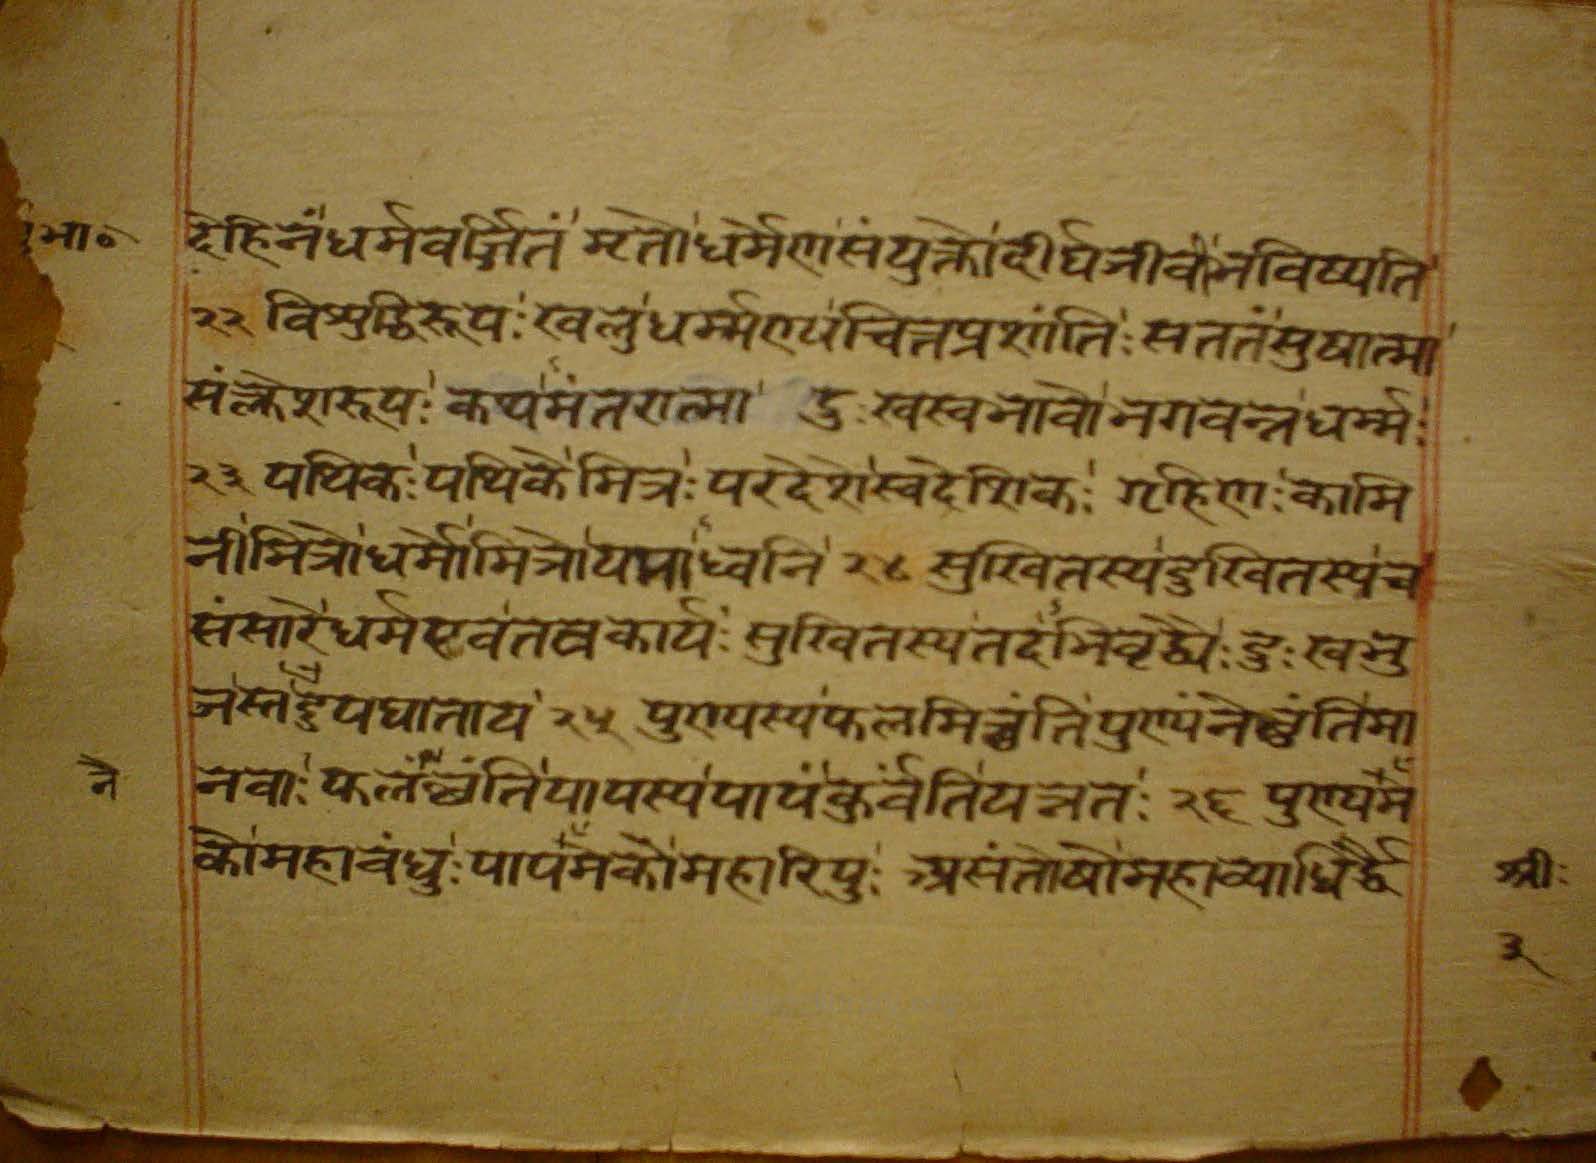 भा०
देहिनं धर्मवर्जितं मृतो धर्मेण संयुक्तो दीर्घजीवी भविष्यति
२२ विशुद्धिरूपः खलु धर्म्मएष चित्तप्रशांतिः सततं सुषात्मा
संक्लेशरूपः कथमंतरात्मा दुःखस्वभावो भगवन्न धर्म्मः
२३ पथिकः पथिके मित्रः परदेशे स्वदेशिकः गृहिणः कामि
नी मित्रो धर्मो मित्रो यमाध्वनि २४ सुखितस्य दुखितस्य च
संसारे धर्म एव तव कार्यः सुखितस्य तदभिवृद्ध्यैः दुःखभु
जस्तदुपघाताय २५ पुण्यस्य फलमिच्छंति पुण्यं नेच्छंति मा
नवाः फलं नेच्छंति पापस्य पापं कुर्वंति यत्नतः २६ पुण्यमे
नै
को महाबंधुः पापमेको महारिपुः असंतोषो महाव्याधिर्द्धै
श्रीः
३